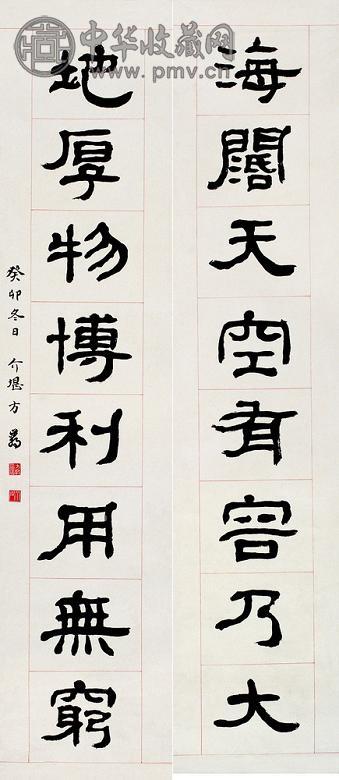 海闊天空有容乃大
地厚物博利用無窮
癸卯冬日 介堪方巖
中华收藏网
www.pmv.cn